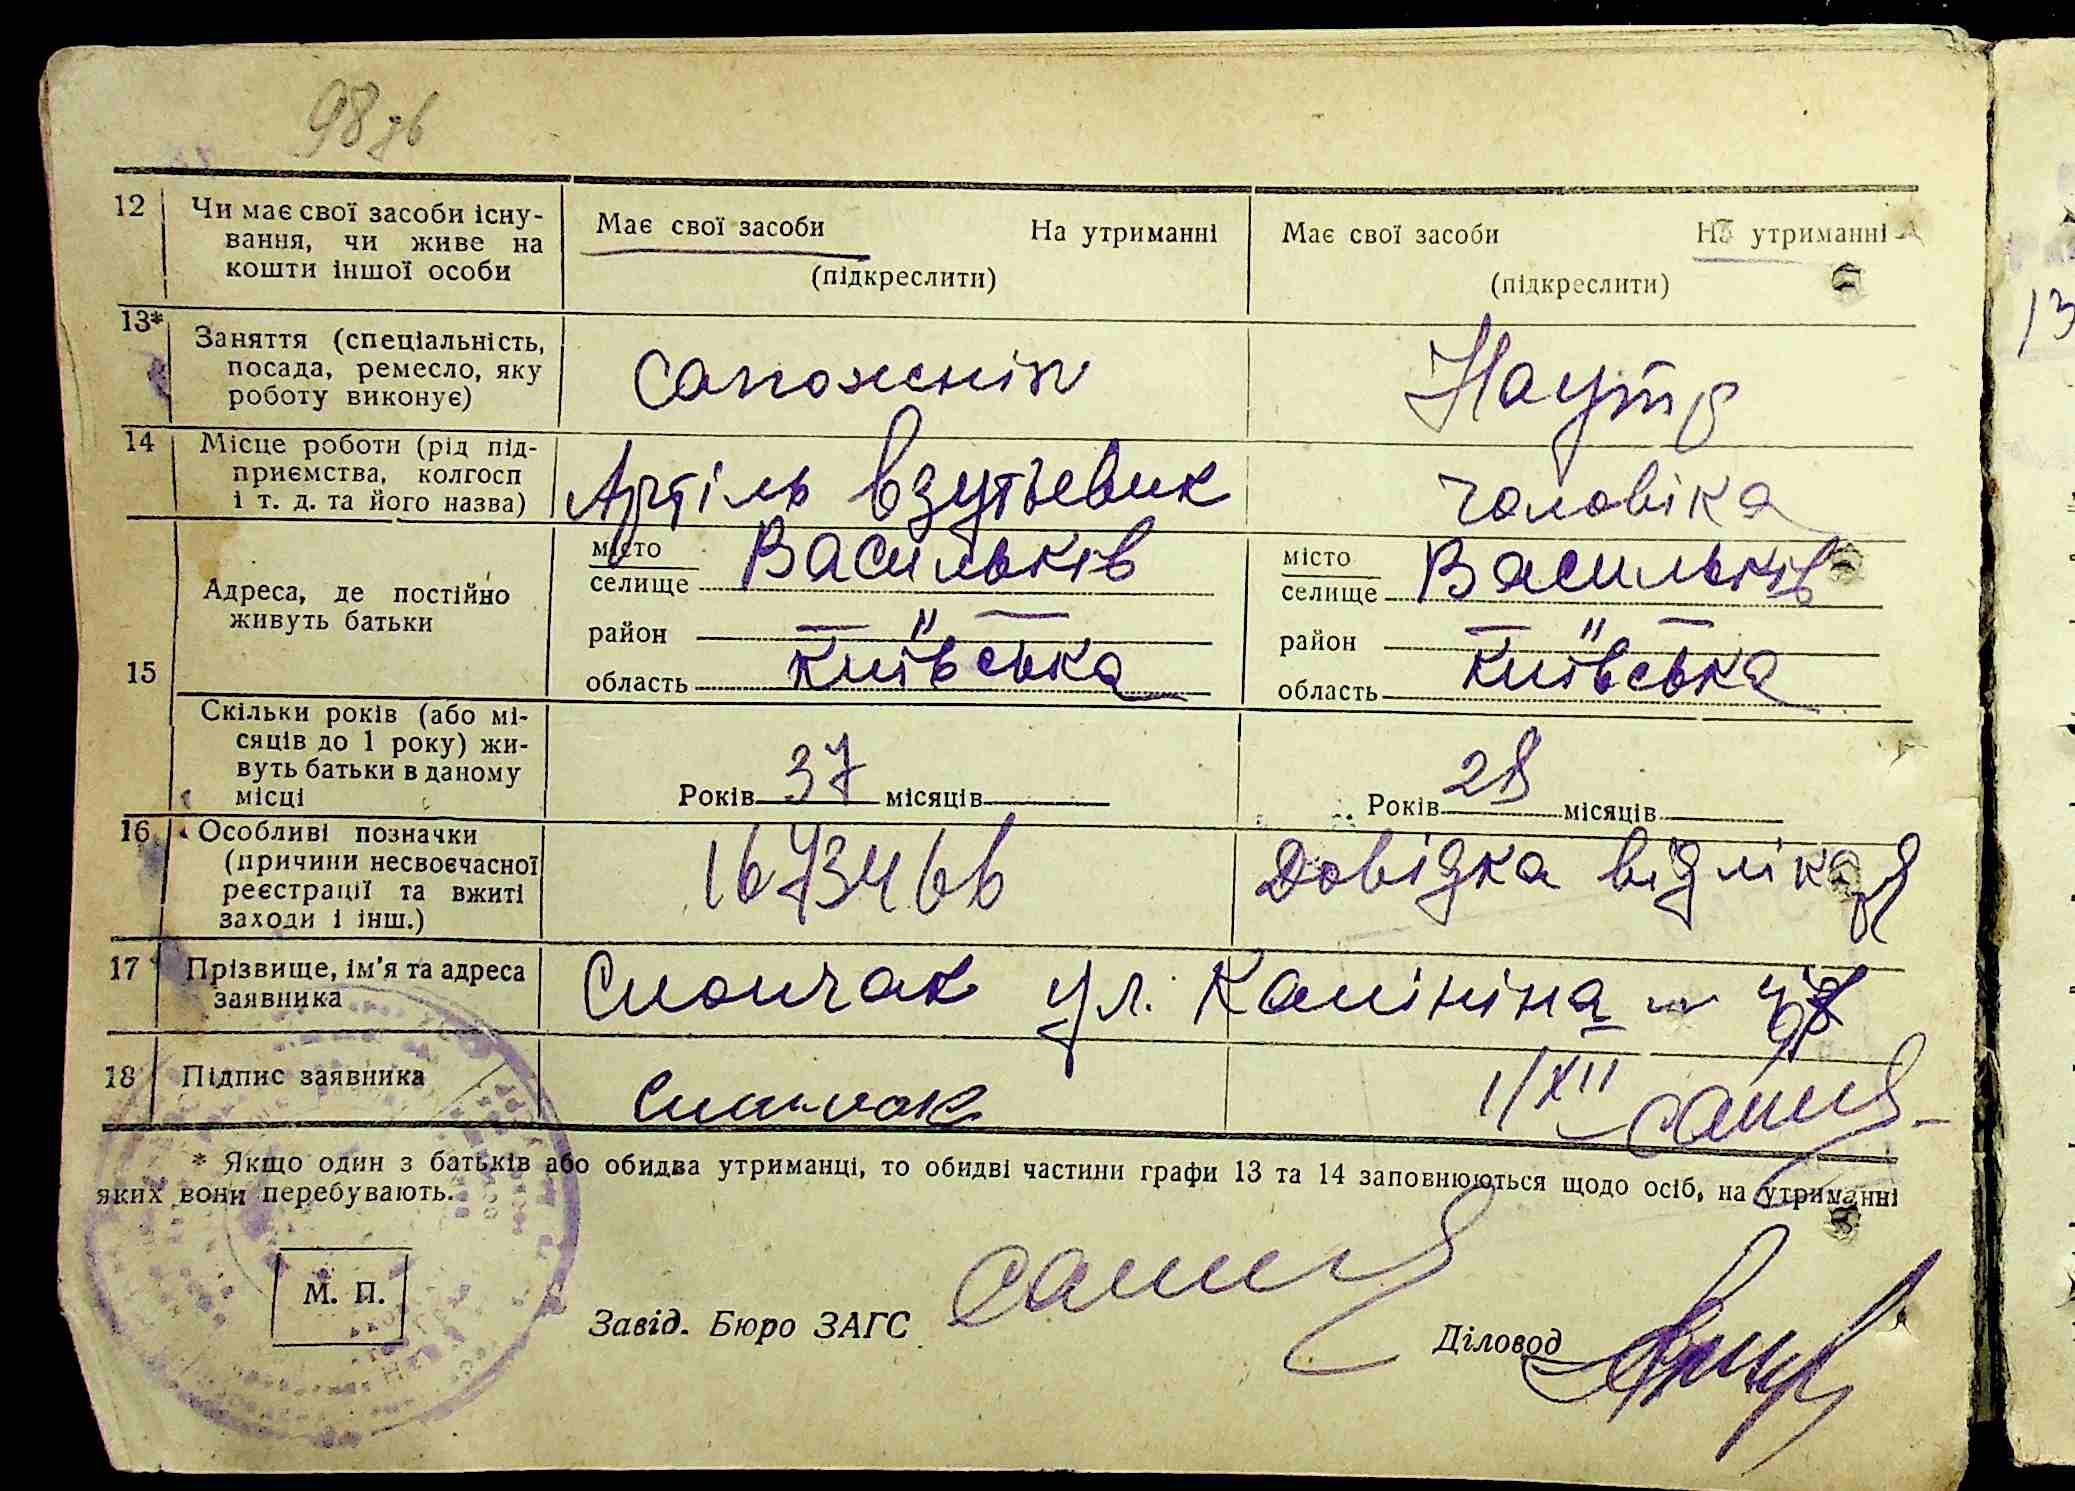 98 зв
12 Чи має свої засоби існу-
вання, чи живе на
кошти іншої особи
Має свої засоби На утриманні
(підкреслити)
Має свої засоби На утриманні
(підкреслити)
13* Заняття (спеціальність,
посада, ремесло, яку
роботу виконує)
сапожнік
На утр
14 Місце роботи (рід під-
приємства, колгосп
і т. д. та його назва)
Артіль взутьевик
чоловіка
15 Адреса, де постійно
живуть батьки
місто
селище Васильків
район — " —
область київська
місто
селище Васильків
район — " —
область київська
Скільки років (або мі-
сяців до 1 року) жи-
вуть батьки в даному
місці
Років 37 місяців
Років 28 місяців
16 Особливі позначки
(причини несвоєчасної
реєстрації та вжиті
заходи і інш.)
Довідка від лікаря
17 Прізвище, ім'я та адреса
заявника
ул. Калініна
18 Підпис заявника
1/XII
* Якщо один з батьків або обидва утриманці, то обидві частини графи 13 та 14 заповнюються щодо осіб, на утриманні
яких вони перебувають.
М. П.
Завід. Бюро ЗАГС
Діловод
13